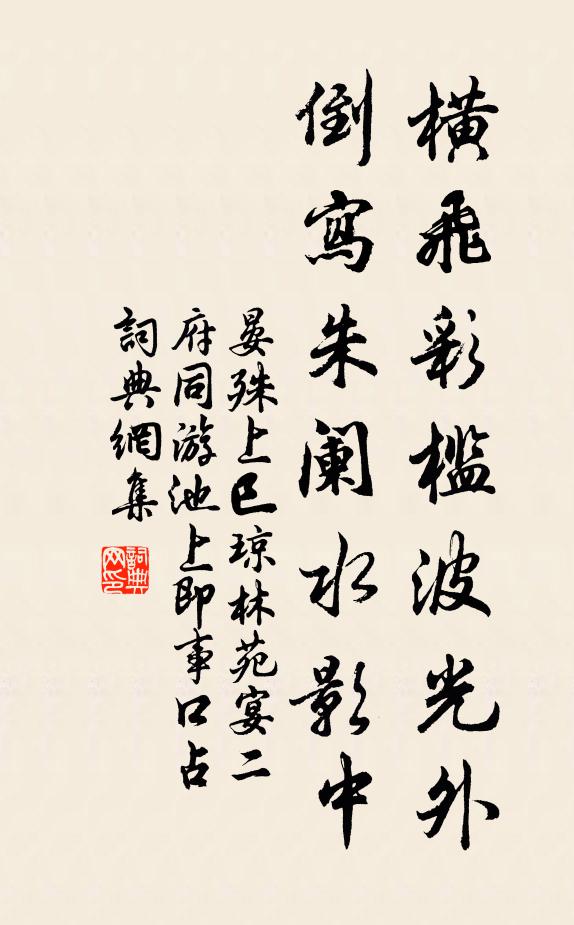 橫飛彩檻波光外
倒寫朱阑水影中
晏殊上巳琼林苑宴二
府同游池上即事口占
詞典網集
詞典网印